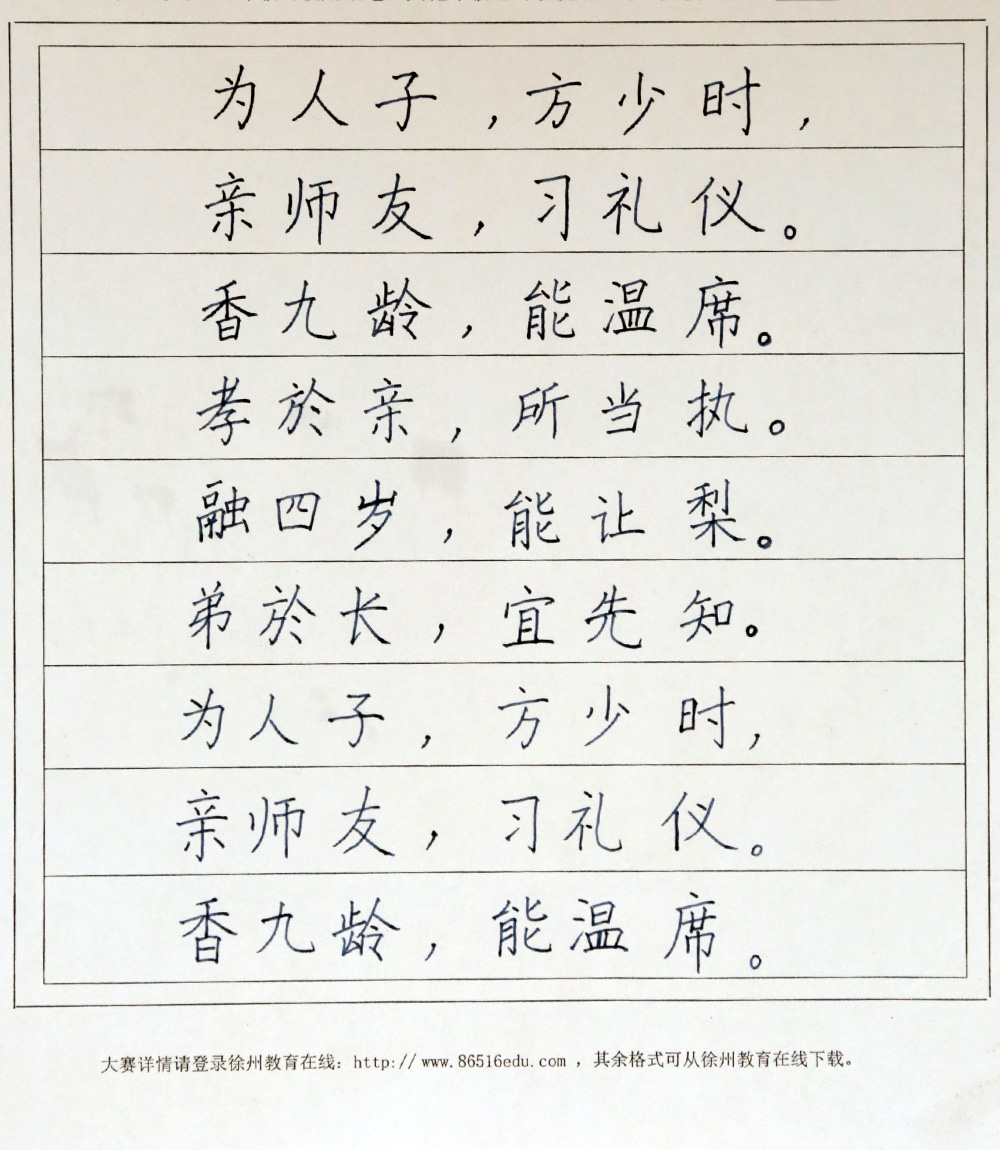 为人子，方少时，
亲师友，习礼仪。
香九龄，能温席。
孝於亲，所当执。
融四岁，能让梨。
弟於长，宜先知。
为人子，方少时，
亲师友，习礼仪。
香九龄，能温席。
大赛详情请登录徐州教育在线：http://www.86516edu.com，其余格式可从徐州教育在线下载。